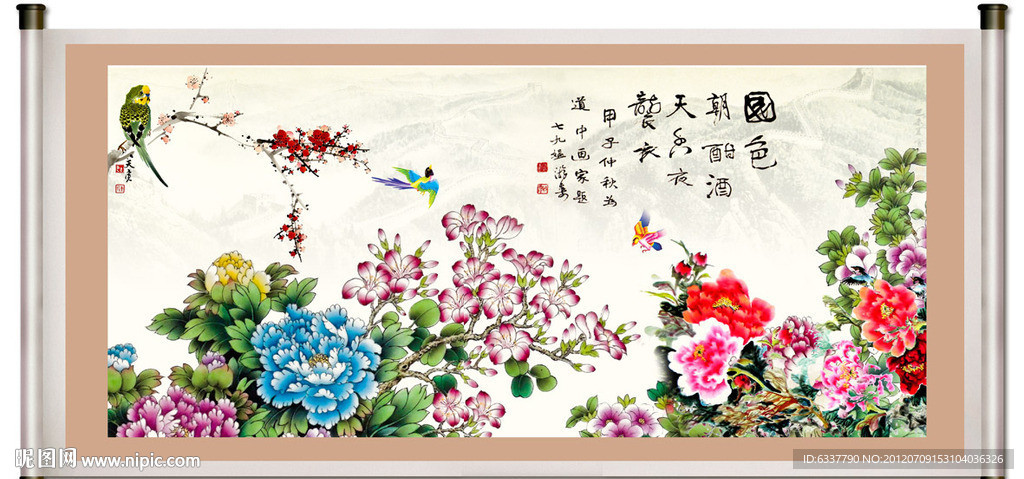 國色
朝酣酒
天香夜
襲衣
甲子仲秋為
道中画家题
七九嫗游壽
昵图网 www.nipic.com
ID:6337790 NO:20120709153104036326